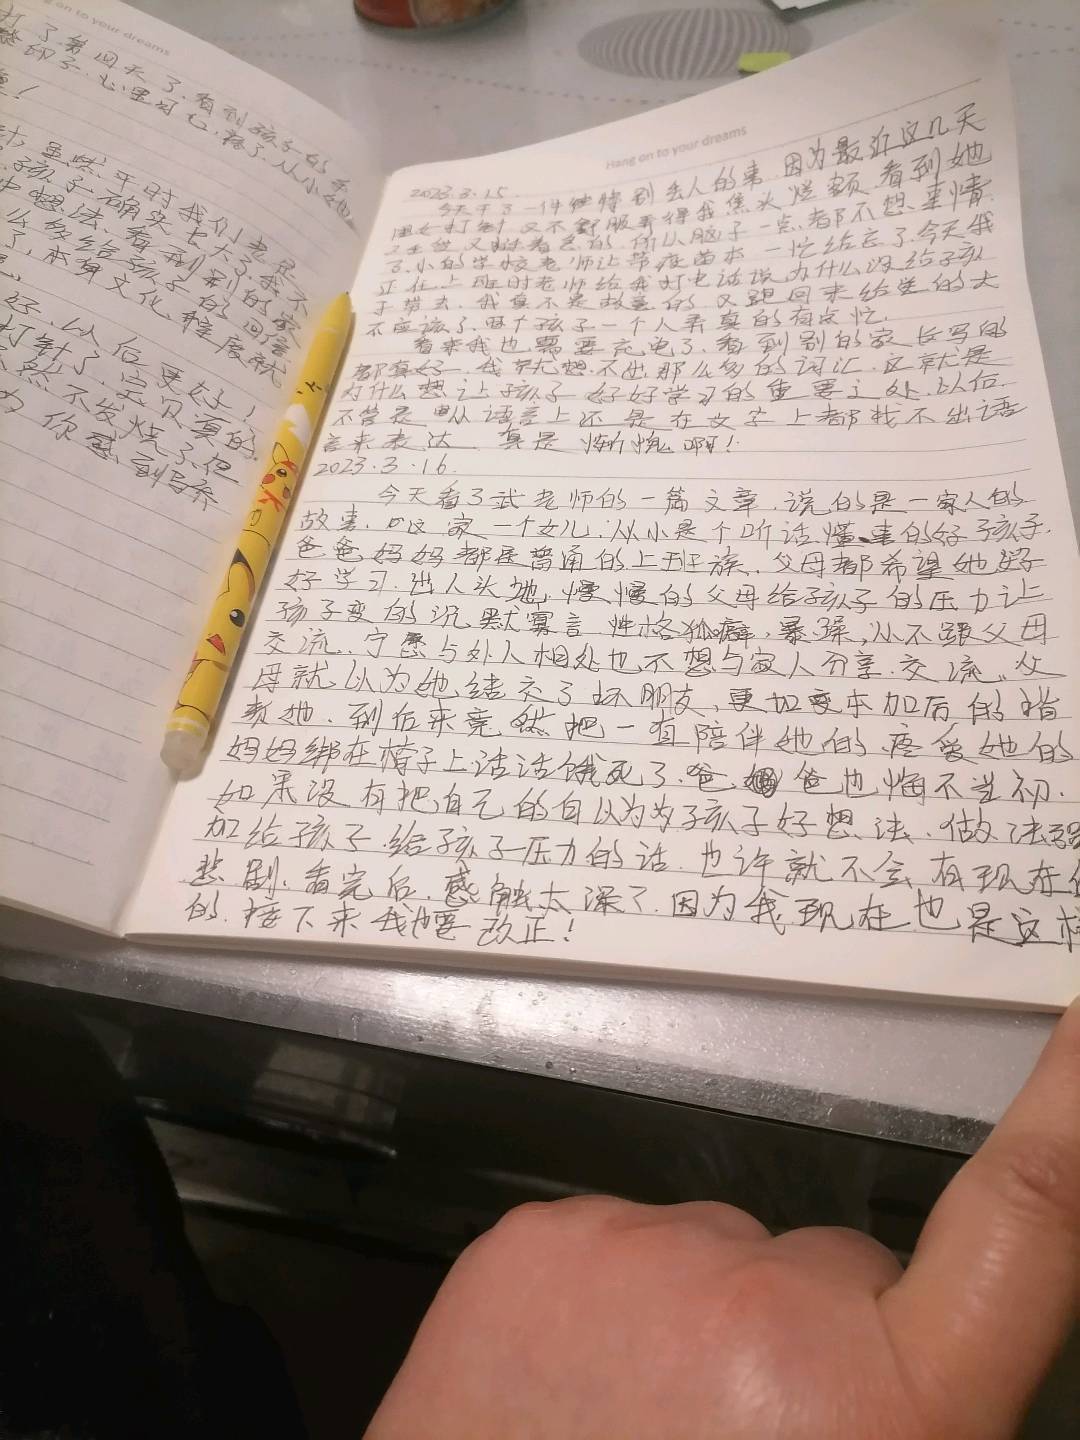 on to your dreams
了第四天了.看到孩子的手
心里可心疼了.从小
虽然平时我们老是
孩子.确实长大了.我不
想法.看到别的家
么多给孩子的回答
了,本身文化程度就
好.以后更好!
打针了.宝贝真的
然不发烧了.但
为你感到骄
Hang on to your dreams
2023.3.15.
今天干了一件特特别丢人的事.因为最近这几天
闺女打针又不舒服弄得我焦头烂额.看到她
又
一点都不想.事情
了.小的学校老师让带疫苗本一忙给忘了.今天我
正在上班时老师给我打电话说为什么没给孩子
带去.我真不是故意的.又跑回来给送的太
不应该了.两个孩子一个人弄真的有点忙.
看来我也需要充电了.看到别的家长写的
都真好.我就想不出那么多的词汇.这就是
为什么想让孩子好好学习的重要之处.以后.
不管是从语言上还是在文字上都找不出语
言来表达 真是惭愧啊!
2023.3.16.
今天看了武老师的一篇文章.说的是一家人的
故事.这家一个女儿.从小是个听话懂事的好孩子.
爸爸妈妈都是普通的上班族.父母都希望她好
好学习.出人头地,慢慢的父母给孩子的压力让
孩子变的沉默寡言 性格孤僻.暴躁,从不跟父母
交流.宁愿与外人相处也不想与家人分享.交流.父
母就以为她结交了坏朋友,更加变本加后的指
教她.到后来竟然把一直陪伴她的.疼爱她的
妈妈绑在椅子上活活饿死了.爸爸也悔不当初.
如果没有把自己的自以为为子孩子好想法.做法强
加给孩子.给孩子压力的话.也许就不会有现在的
悲剧.看完后.感触太深了.因为我现在也是这样
的.接下来我也要改正!